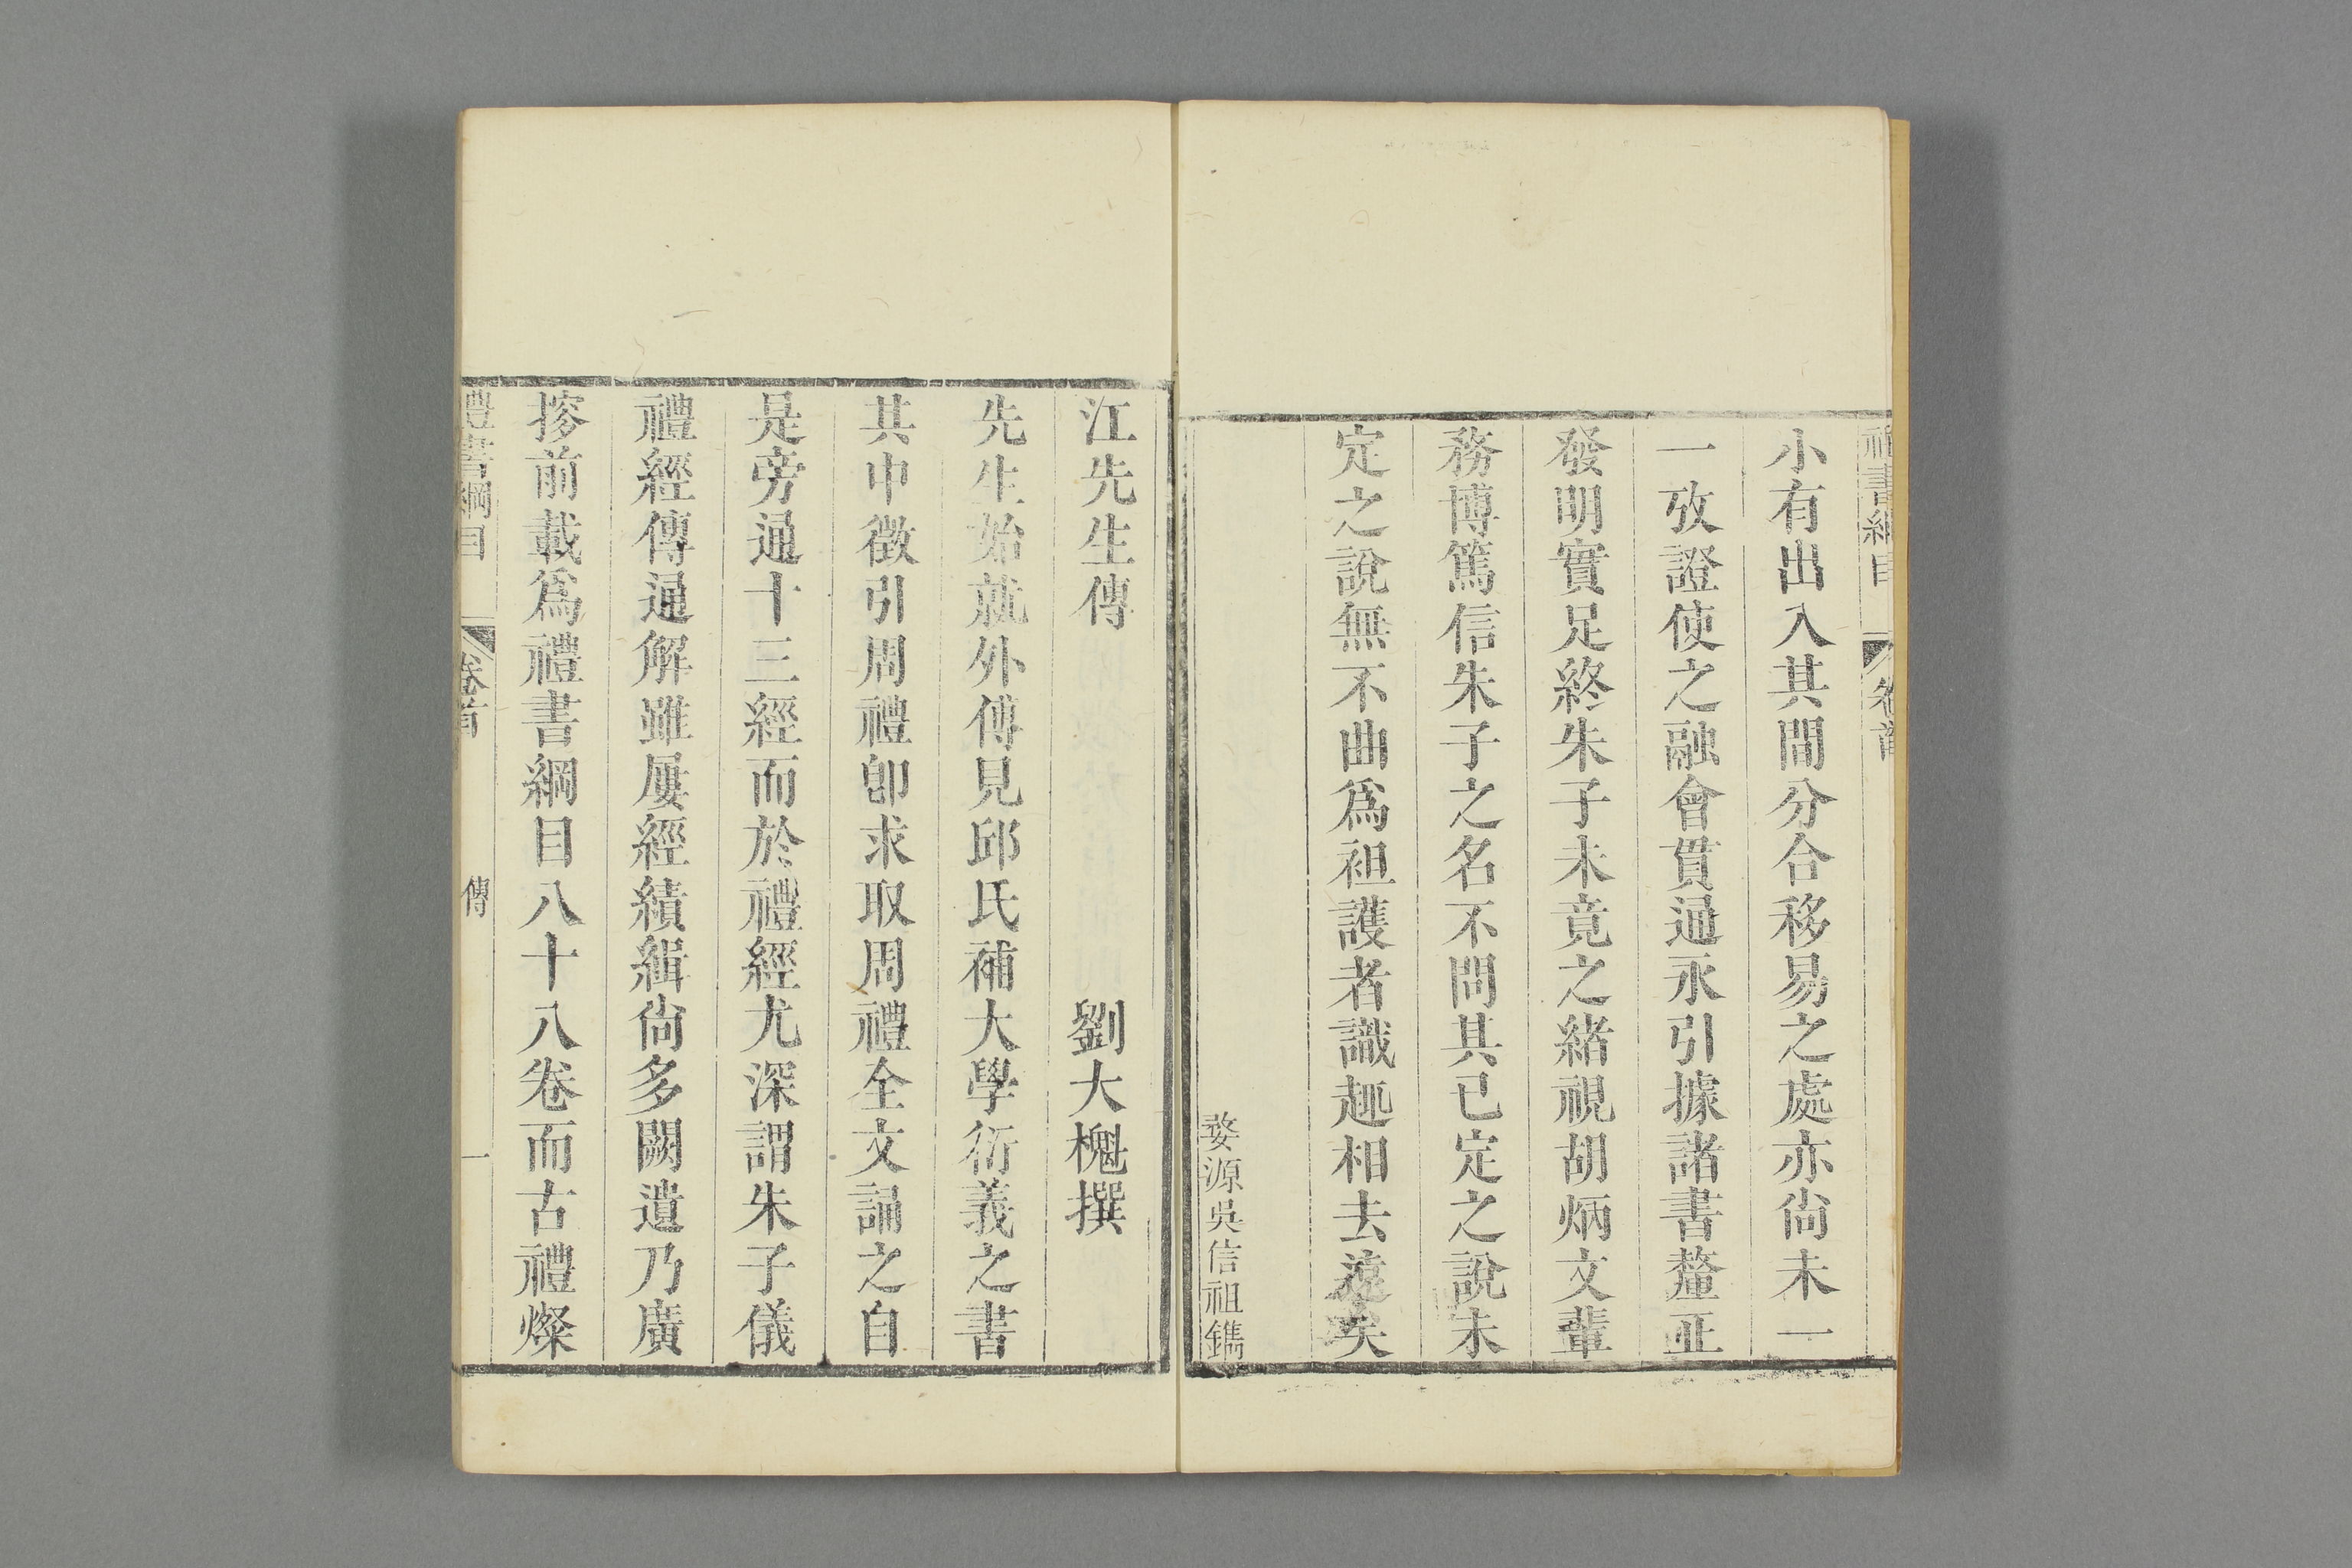 小有出入其間分合移易之處亦尙未一
一攷證使之融會貫通永引據諸書釐正
發明實足終朱子未竟之緒視胡炳文輩
務博篤信朱子之名不問其已定之說未
定之說無不曲爲袒護者識趣相去遠矣
婺源吳信祖鐫
江先生傳
劉大櫆撰
先生始就外傅見邱氏補大學衍義之書
其中徵引周禮卽求取周禮全文誦之自
是旁通十三經而於禮經尤深謂朱子儀
禮經傳通解雖屢經續緝尙多闕遺乃廣
摉前載爲禮書綱目八十八卷而古禮燦
禮書綱目 卷首 傳 一